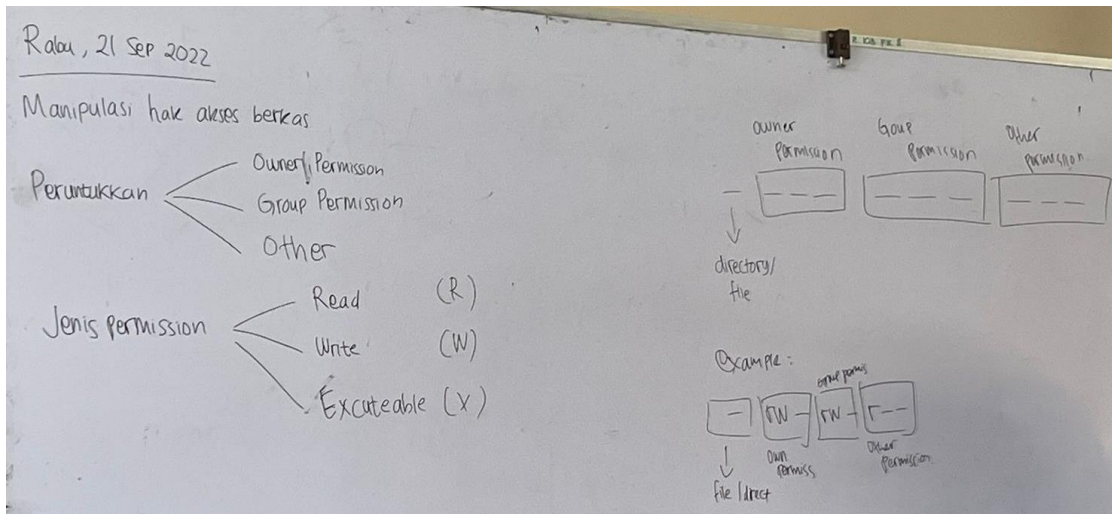 Rabu, 21 Sep 2022
Manipulasi hak akses berkas
Peruntukkan
Owner Permission
Group Permission
Other
Jenis permission
Read (R)
Write (W)
Excuteable (X)
owner permission
Goup permission
Other permission
– – – – – – – – – –
directory/
file
Example:
Group permis
– rw- rw- r--
own permiss
Other permission
file/direct